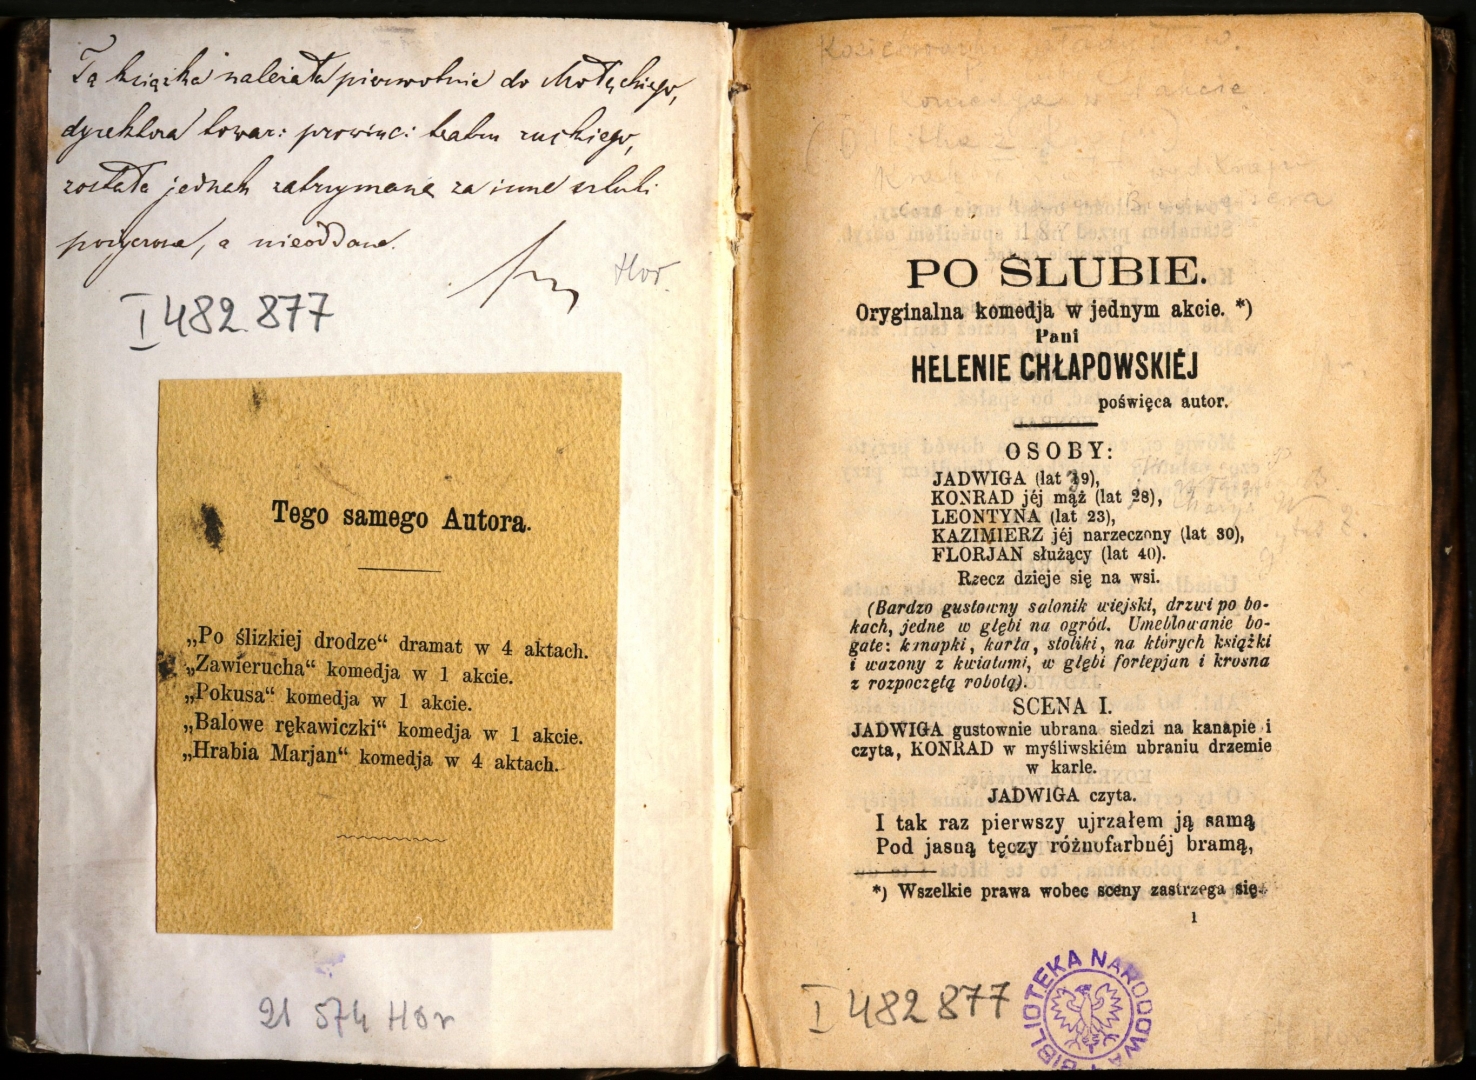 Ta książka należała pierwotnie do Mołęckiego,
dyrektora towar: prowinc: teatru ruskiego,
została jednak zatrzymana za inne sztuki
pożyczone, a nieoddane.
Hor.
I 482.877
Tego samego Autora.
„Po ślizkiej drodze“ dramat w 4 aktach.
„Zawierucha“ komedja w 1 akcie.
„Pokusa“ komedja w 1 akcie.
„Balowe rękawiczki“ komedja w 1 akcie.
„Hrabia Marjan“ komedja w 4 aktach.
21 574 Hor
PO ŚLUBIE.
Oryginalna komedja w jednym akcie. *)
Pani
HELENIE CHŁAPOWSKIÉJ
poświęca autor.
OSOBY:
JADWIGA (lat 19),
KONRAD jéj mąż (lat 28),
LEONTYNA (lat 23),
KAZIMIERZ jéj narzeczony (lat 30),
FLORJAN służący (lat 40).
Rzecz dzieje się na wsi.
(Bardzo gustowny salonik wiejski, drzwi po bo-
kach, jedne w głębi na ogród. Umeblowanie bo-
gate: kanapki, karła, stoliki, na których książki
i wazony z kwiatami, w głębi fortepjan i krosna
z rozpoczętą robotą).
SCENA I.
JADWIGA gustownie ubrana siedzi na kanapie i
czyta, KONRAD w myśliwskiém ubraniu drzemie
w karle.
JADWIGA czyta.
I tak raz pierwszy ujrzałem ją samą
Pod jasną tęczy różnofarbnéj bramą,
*) Wszelkie prawa wobec sceny zastrzega się.
1
I 482.877
BIBLIOTEKA NARODOWA